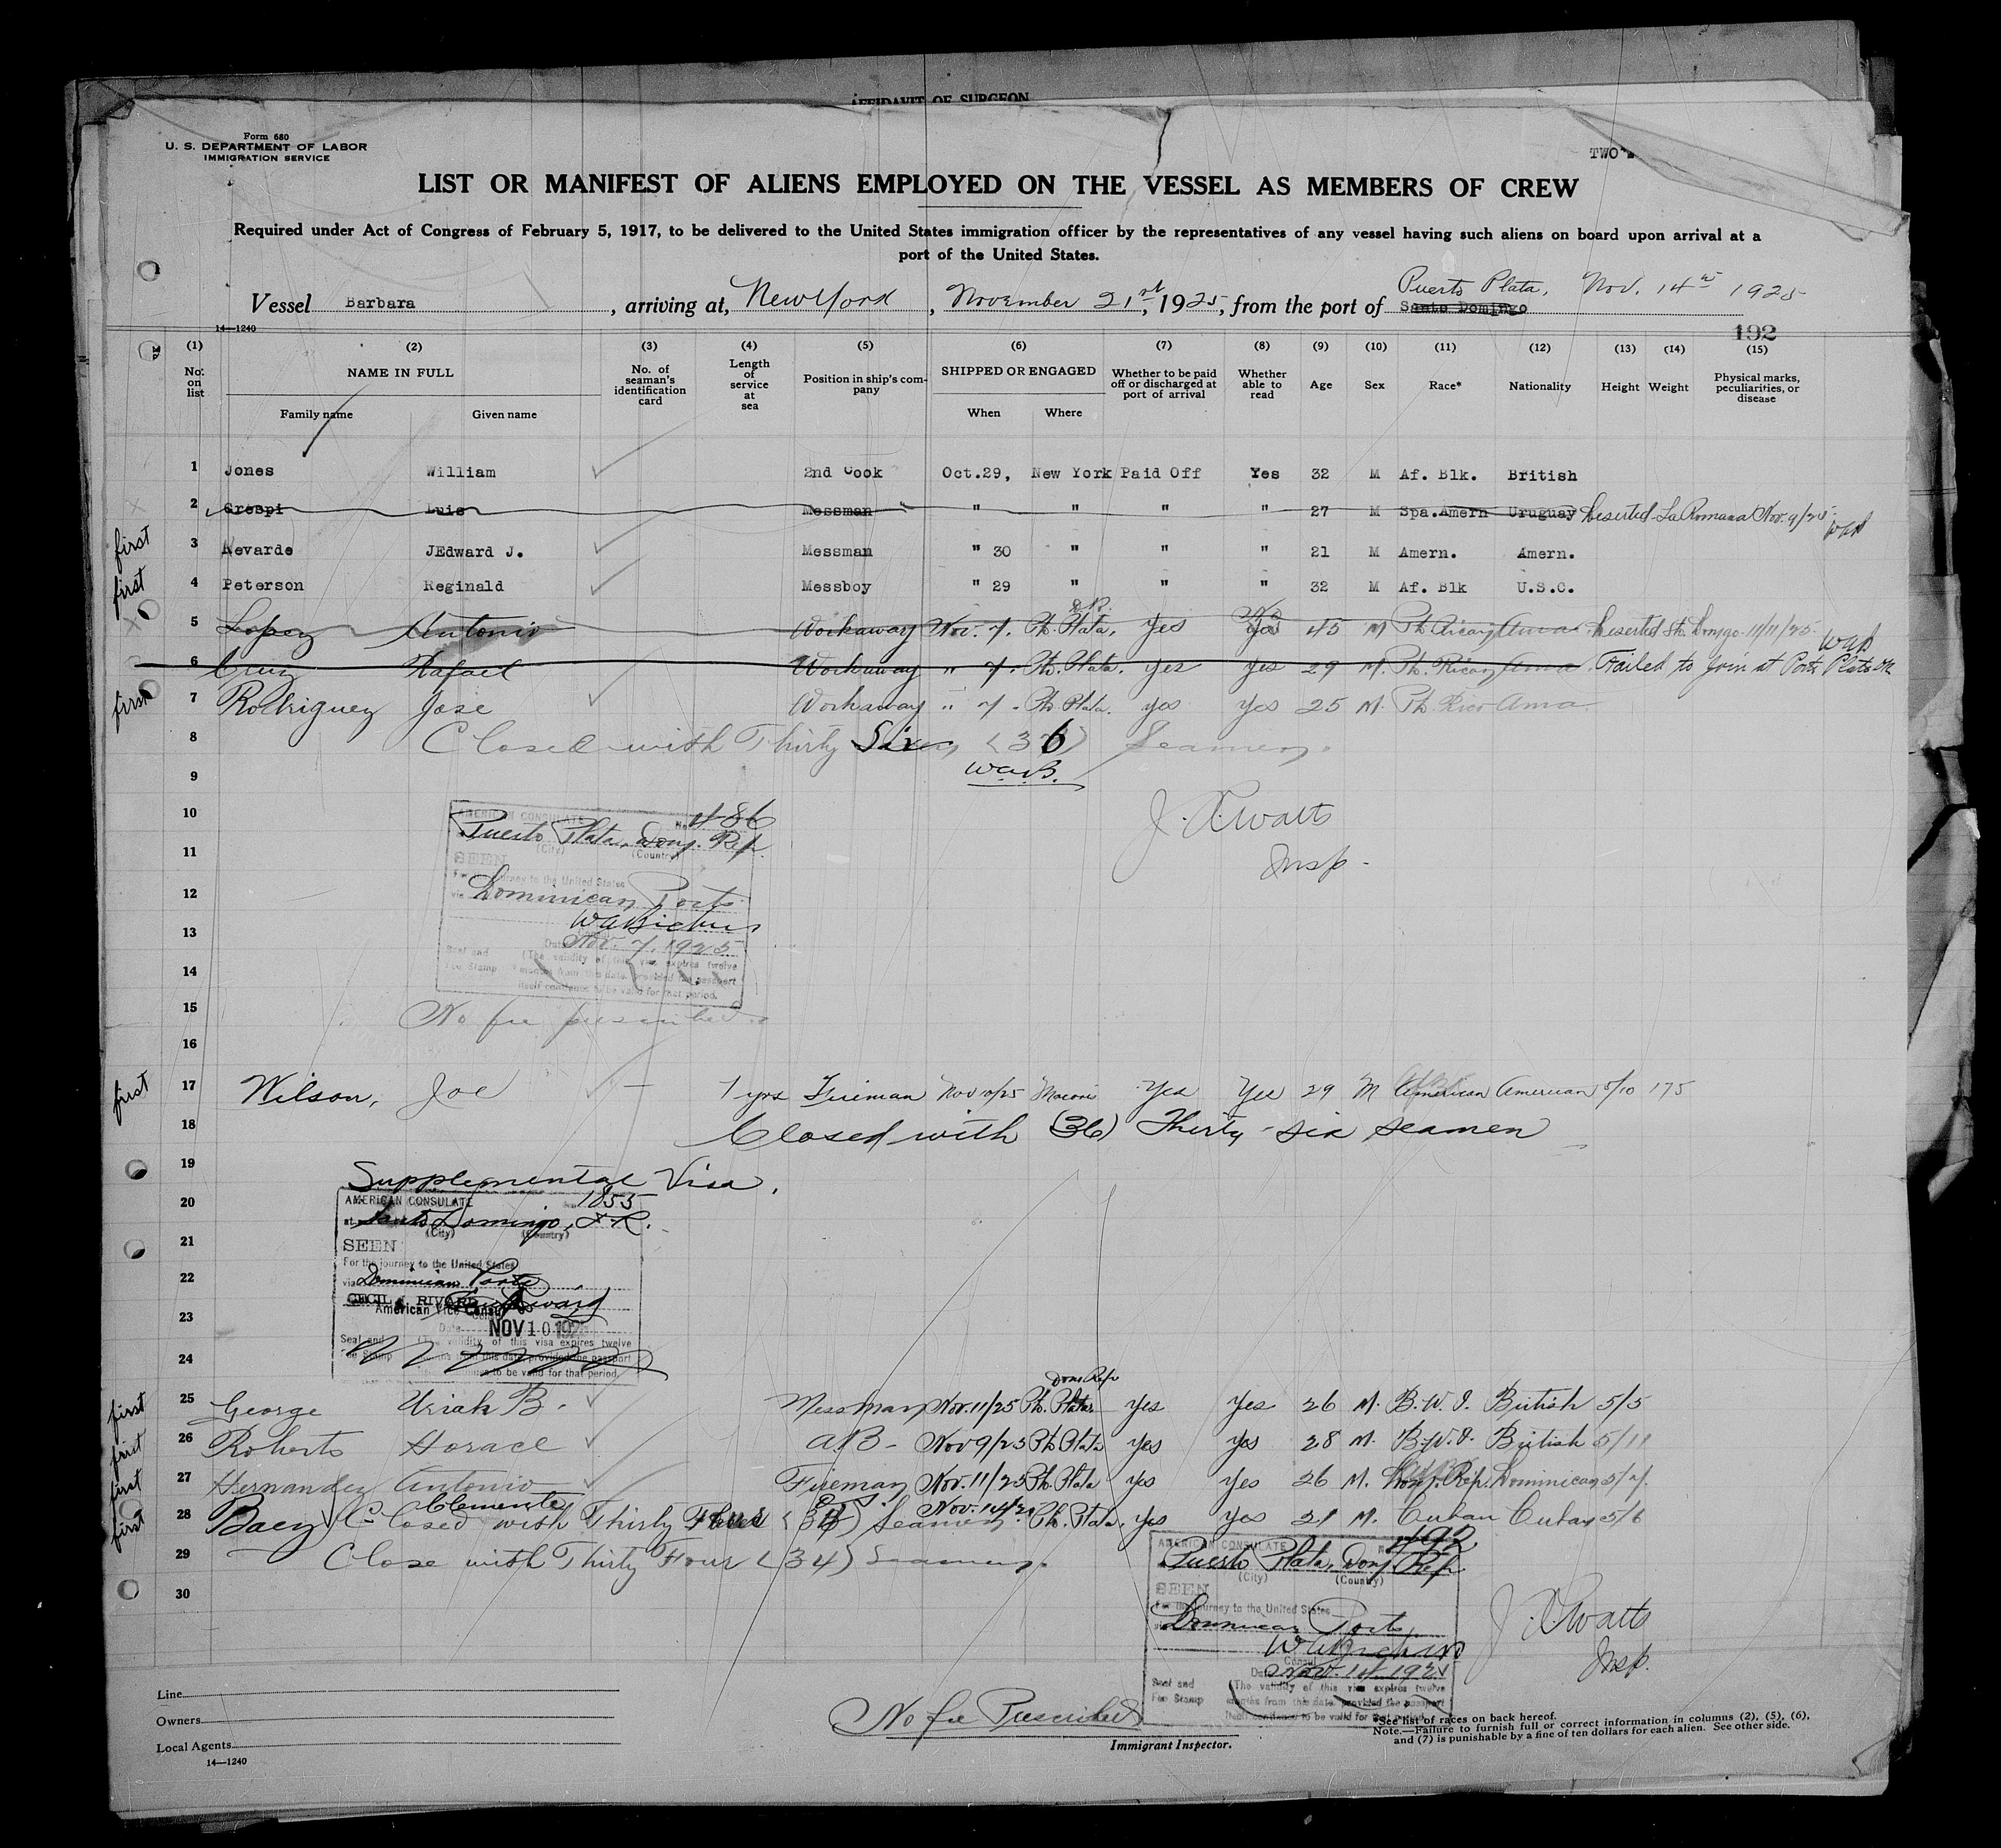 AFFIDAVIT OF SURGEON
Form 680
U. S. DEPARTMENT OF LABOR
IMMIGRATION SERVICE
TWO
LIST OR MANIFEST OF ALIENS EMPLOYED ON THE VESSEL AS MEMBERS OF CREW
Required under Act of Congress of February 5, 1917, to be delivered to the United States immigration officer by the representatives of any vessel having such aliens on board upon arrival at a
port of the United States.
Puerto Plata, Nov. 14th 1925
Vessel Barbara, arriving at, New York, November 21st, 1925, from the port of Santo Domingo
14—1240
192
(1) (2) (3) (4) (5) (6) (7) (8) (9) (10) (11) (12) (13) (14) (15)
No. on list NAME IN FULL Family name Given name No. of seaman's identification card Length of service at sea Position in ship's company SHIPPED OR ENGAGED When Where Whether to be paid off or discharged at port of arrival Whether able to read Age Sex Race* Nationality Height Weight Physical marks, peculiarities, or disease
1 Jones William 2nd Cook Oct.29, New York Paid Off Yes 32 M Af. Blk. British
2 Crespi Luis Messman " " " " 27 M Spa.Amern Uruguay Deserted La Romana Nov. 9/25 WAB
first 3 Nevarde JEdward J. Messman " 30 " " " 21 M Amern. Amern.
first 4 Peterson Reginald Messboy " 29 " " " 32 M Af. Blk U.S.C.
D.R.
5 Lopez Antonio Workaway Nov. 7. Pto. Plata, Yes Yes 45 M Pto. Rican Ama Deserted Sto. Domgo. 11/11/25 WAB
6 Cruz Rafael Workaway " 7. Pto. Plata. yes yes 29 M. Pto. Rican Ama Failed to join at Porto Plata
first 7 Rodriguez Jose Workaway " 7. Pto Plata. yes yes 25 M. Pto Rico Ama
8 Closed with Thirty Six (36) Seamen.
9 W.A.B.
10 AMERICAN CONSULATE No. 486
Puerto Plata, Dom. Rep.
(City) (Country)
J. Watts
11 SEEN
Insp.
For the journey to the United States
12 via Dominican Ports
13 WABickers
Date Nov. 7, 1925
Seal and Fee Stamp (The validity of this visa expires twelve
14 months from this date, provided the passport
itself continues to be valid for that period.
15 No fee prescribed.
16
first 17 Wilson, Joe — 7 yrs Fireman Nov 10/25 Macoris Yes Yes 29 M American American 5/10 175
18 Closed with (36) Thirty six seamen
19 Supplemental Visa.
20 AMERICAN CONSULATE 1855
at Santo Domingo, D.R.
(City) (Country)
21 SEEN
For the journey to the United States
22 via Dominican Ports
CECIL RIVARD
American Vice Consul
23 Date NOV 10 192
Seal and Fee Stamp (The validity of this visa expires twelve
24 months from this date, provided the passport
itself continues to be valid for that period.
Dom Rep
first 25 George Uriah B. Messman Nov. 11/25 Pto. Plata Yes Yes 26 M. B.W.I. British 5/5
first 26 Roberts Horace A.B- Nov 9/25 Pto Plata Yes Yes 28 M. B.W.I. British 5/11
first 27 Hernandez Antonio Fireman Nov. 11/25 Pto. Plata Yes Yes 26 M. Dom. Rep. Dominican 5/7.
first 28 Baez Clemente Nov. 14/25 Pto. Plata. Yes Yes 21 M. Cuban Cuban 5/6
Closed with Thirty Seamen
29 Close with Thirty Four (34) Seamen.
30
AMERICAN CONSULATE No. 492
Puerto Plata, Dom. Rep
(City) (Country)
SEEN
For the journey to the United States
via Dominican Ports
WABickers
Consul
Date Nov. 14 192
Seal and Fee Stamp (The validity of this visa expires twelve
months from this date, provided the passport
itself continues to be valid for that period.
J. Watts
Insp.
Line
Owners
Local Agents
14—1240
No fee Prescribed
Immigrant Inspector.
*See list of races on back hereof.
Note.—Failure to furnish full or correct information in columns (2), (5), (6),
and (7) is punishable by a fine of ten dollars for each alien. See other side.